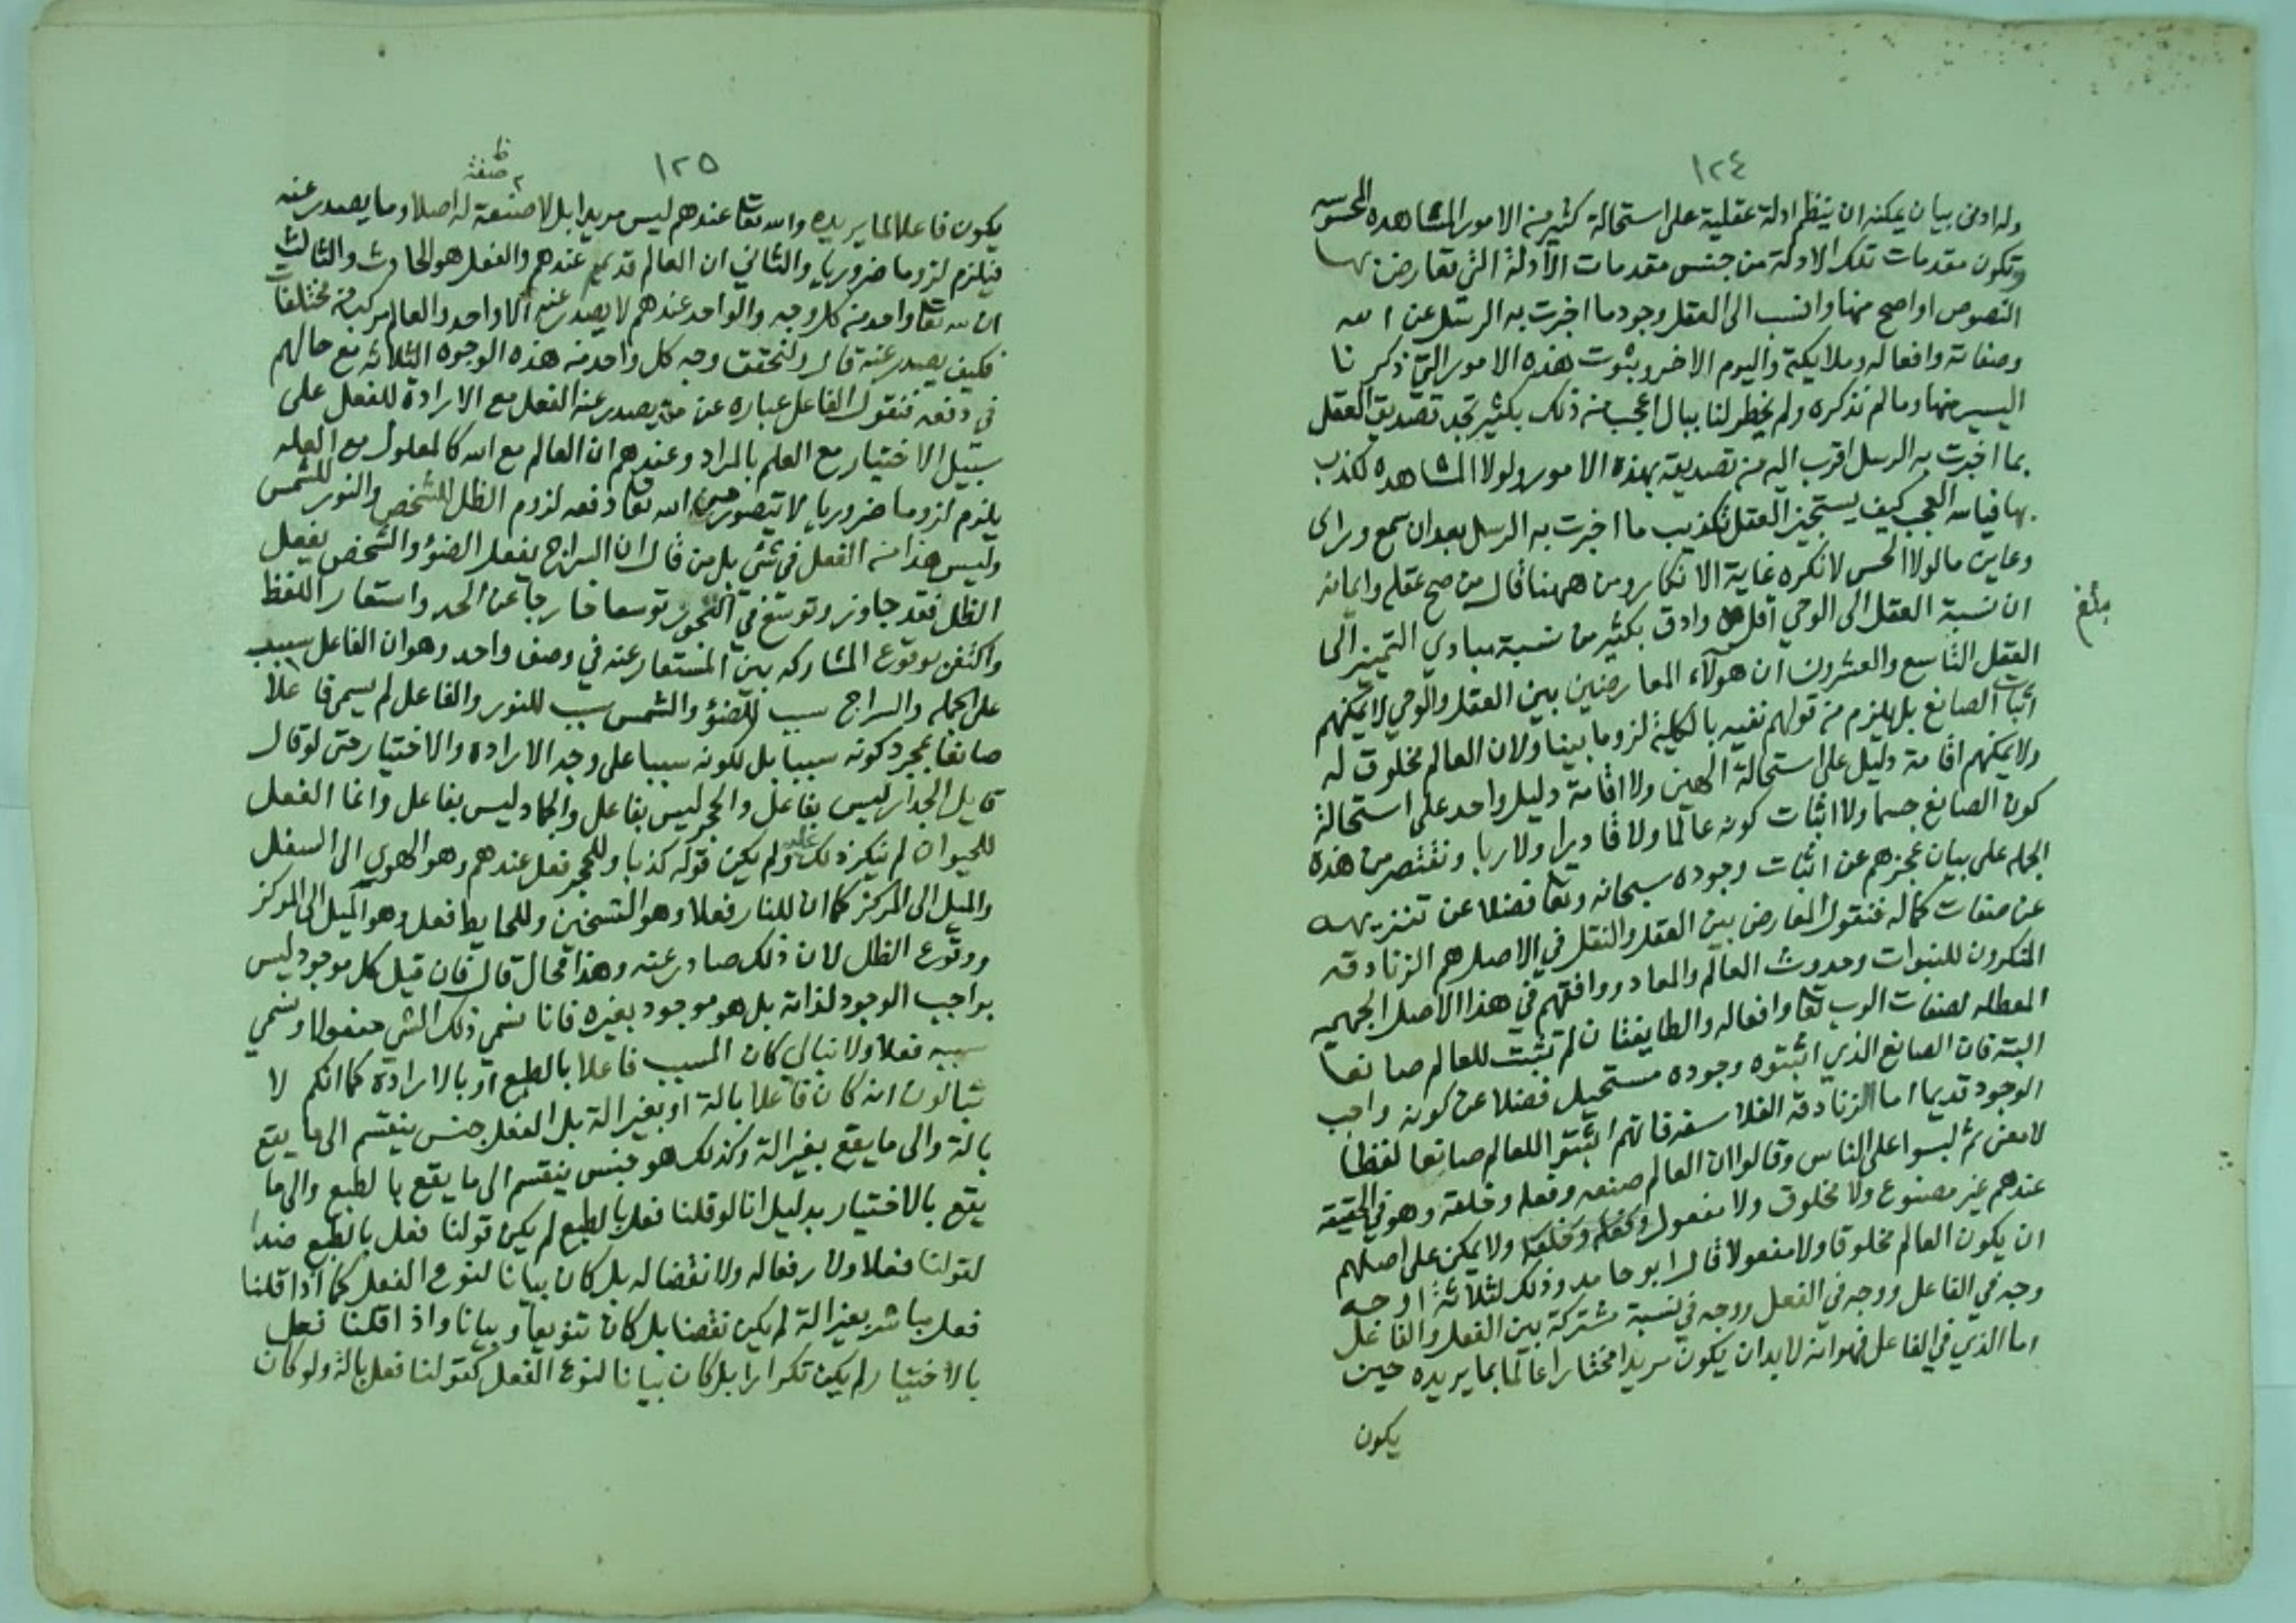 ١٢٤
وله ادنى بيان يمكنه ان ينظم ادلة عقلية على استحالة كثير من الامور المشاهده المحسوسه
وتكون مقدمات تلك الادلة من جنس مقدمات الادلة التي تعارض بها
النصوص او اصح منها وانسب الى العقل وجود ما اخبرت به الرسل عن الله
وصفاته وافعاله وملايكته واليوم الاخر وبثوت هذه الامور التي ذكرنا
اليسير منها وما لم نذكره ولم يخطر لنا ببال اعجب من ذلك بكثير تجد تصديق العقل
بما اخبرت به الرسل اقرب اليه من تصديقه بهذه الامور ولولا المشاهده لكذب
بها فيالله العجب كيف يستجيز العقل تكذيب ما اخبرت به الرسل بعد ان سمع وراى
وعاين ما لولا الحس لانكره غاية الانكار ومن ههنا قال من صح عقله وايمانه
ان نسبة العقل الى الوحي اقل وادق بكثير من نسبة مبادي التمييز الى
بلغ
العقل التاسع والعشرون ان هولآء المعارضين بين العقل والوحي لا يمكنهم
اثبات الصانع بل يلزم من قولهم نفيه بالكلية لزوما بينا ولان العالم مخلوق له
ولا يمكنهم اقامة دليل على استحالة الهين ولا اقامة دليل واحد على استحالة
كون الصانع جسما ولا اثبات كونه عالما ولا قاديرا ولا ربا ونقتصر من هذه
الجمله على بيان عجزهم عن اثبات وجوده سبحانه وتعا فضلا عن تنزيهه
عن صفات كماله فنقول المعارض بين العقل والنقل في الاصل هم الزنادقه
المنكرون للنبوات وحدوث العالم والمعاد ووافقهم في هذا الاصل الجهميه
المعطله لصفات الرب تعا وافعاله والطايفتان لم تثبت للعالم صانعا
البتة فان الصانع الذي اثبتوه وجوده مستحيل فضلا عن كونه واجب
الوجود قديما اما الزنادقه الفلاسفه فانهم اثبتوا للعالم صانعا لفظا
لا معنى ثم لبسوا على الناس وقالوا ان العالم صنعه وفعله وخلقه وهو في الحقيقه
عندهم غير مصنوع ولا مخلوق ولا مفعول ولا يمكن على اصلهم
ان يكون العالم مخلوقا ولا مفعولا قال ابو حامد وذلك لثلاثة اوجه
وجه في الفاعل ووجه في الفعل ووجه في نسبة مشتركة بين الفعل والفاعل
اما الذي في الفاعل فهو انه لابد ان يكون مريدا مختارا عالما بما يريده حين
يكون
١٢٥
ظ صفة
يكون فاعلا لما يريده والله تعا عندهم ليس مريدا بل لا صنعة له اصلا وما يصدر عنه
فيلزم لزوما ضروريا والثاني ان العالم قديم عندهم والفعل هو الحادث والثالث
ان الله تعا واحد من كل وجه والواحد عندهم لا يصدر عنه الا واحد والعالم مركب من مختلفات
فكيف يصدر عنه قال ولنحقق وجه كل واحد من هذه الوجوه الثلاثه مع حالهم
في دفعه فنقول الفاعل عباره عن من يصدر عنه الفعل مع الارادة للفعل على
سبيل الاختيار مع العلم بالمراد وعندهم ان العالم مع الله كالمعلول مع العله
يلزم لزوما ضروريا لا يتصور من الله تعا دفعه لزوم الظل للشخص والنور للشمس
وليس هذا من الفعل في شئ بل من قال ان السراج يفعل الضوء والشخص يفعل
الظل فقد جاوز وتوسع في التجوز توسعا خارجا عن الحد واستعار اللفظ
واكتفى بوقوع المشاركه بين المستعار عنه في وصف واحد وهو ان الفاعل سبب
على الجمله والسراج سبب للضوء والشمس سبب للنور والفاعل لم يسمى فاعلا
صانعا بمجرد كونه سببا بل لكونه سببا على وجه الارادة والاختيار حتى لو قال
قايل الجدار ليس بفاعل والحجر ليس بفاعل والجماد ليس بفاعل وانما الفعل
للحيوان لم ينكر ذلك عليه ولم يكن قوله كذبا وللحجر فعل عندهم وهو الهوي الى السفل
والميل الى المركز كما ان للنار فعلا وهو التسخين وللحايط فعل وهو الميل الى المركز
ووقوع الظل لان ذلك صادر عنه وهذا محال قال فان قيل كل موجود ليس
بواجب الوجود لذاته بل هو موجود بغيره فانا نسمي ذلك الشي مفعولا ونسمي
سببه فعلا ولا نبالي كان المسبب فاعلا بالطبع او بالارادة كما انكم لا
تبالون انه كان فاعلا بالة او بغير الة بل الفعل جنس ينقسم الى ما يقع
بالة والى ما يقع بغير الة وكذلك هو جنس ينقسم الى ما يقع بالطبع والى ما
يقع بالاختيار بدليل انا لو قلنا فعل بالطبع لم يكن قولنا فعل بالطبع ضدا
لقولنا فعلا ولا رفعا له ولا نقضا له بل كان بيانا لنوع الفعل كما اذا قلنا
فعل مباشر بغير الة لم يكن نقضا بل كان تنويعا وبيانا واذا قلنا فعل
بالاختيار لم يكن تكرارا بل كان بيانا لنوع الفعل كقولنا فعل بالة ولو كان